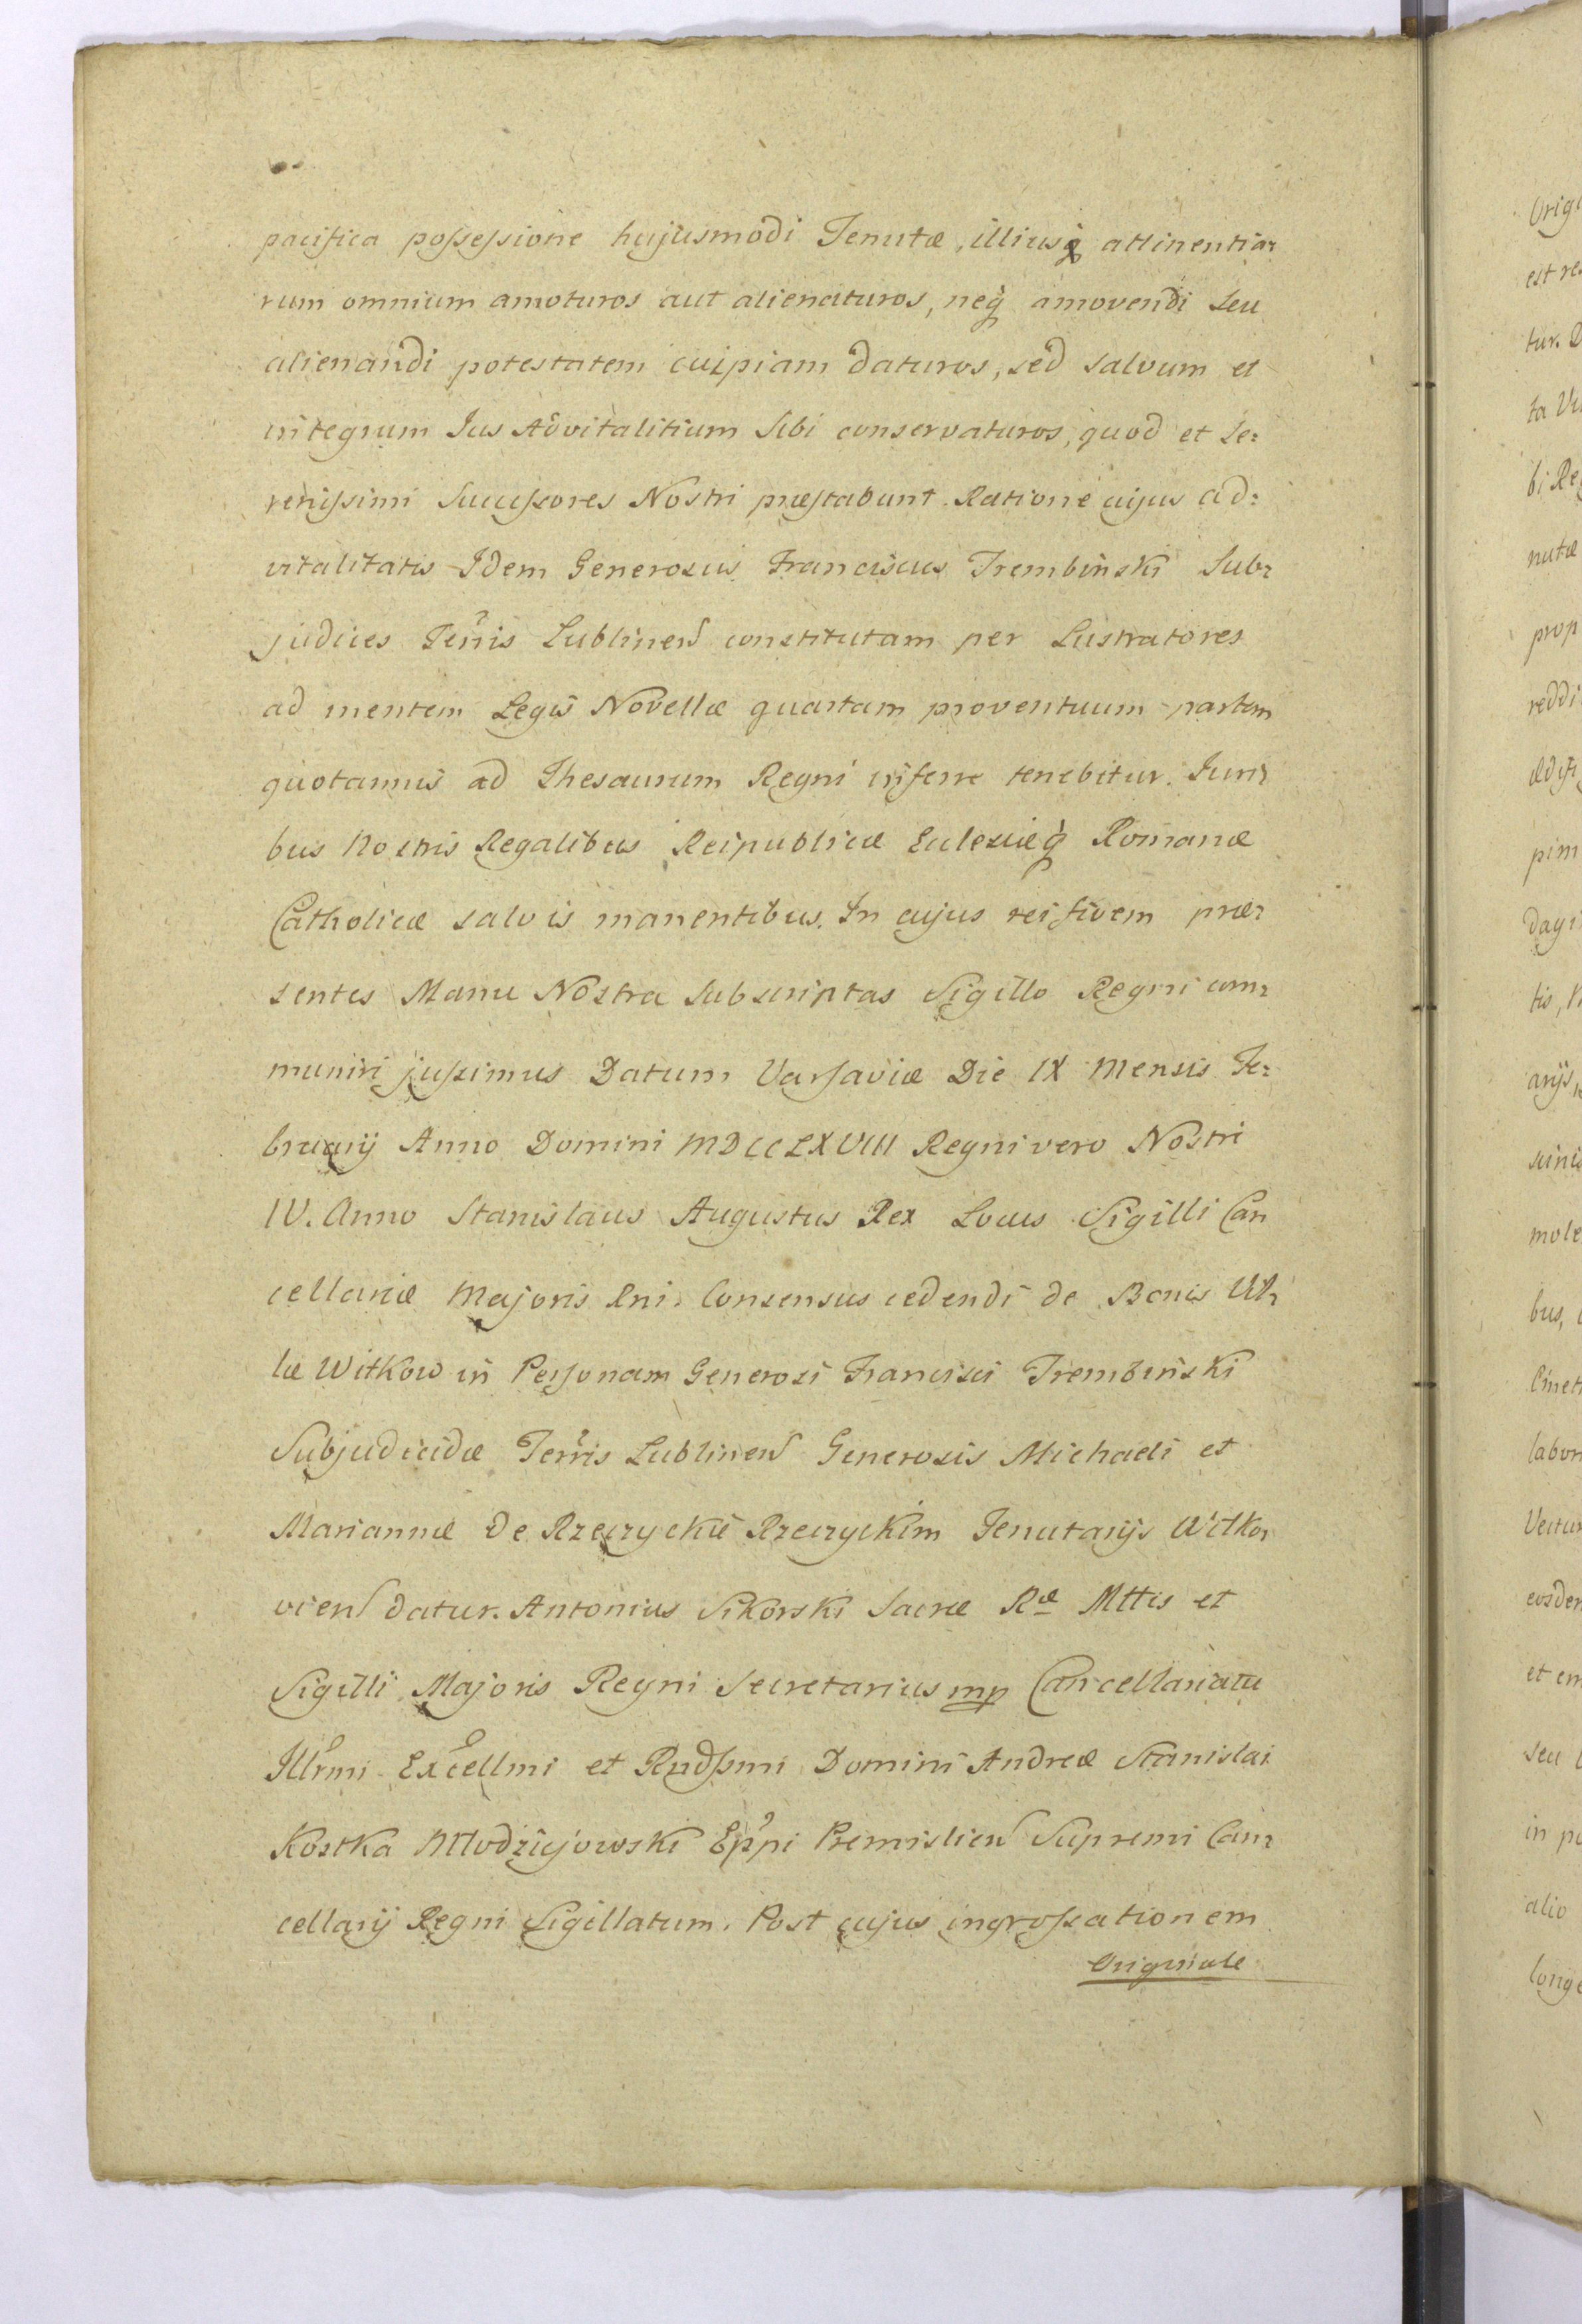 pacifica possessione hujusmodi Tenutæ, illiusq attinentia-
rum omnium amoturos aut alienaturos, neq amovendi seu
alienandi potestatem cuipiam daturos, sed salvum et
integrum Jus Advitalitium Sibi conservaturos, quod et Se-
renissimi Successores Nostri præstabunt. Ratione cujus ad-
vitalitatis Idem Generosus Franciscus Trembinski Sub-
judices Terris Lublinens constitutam per Lustratores
ad mentem Legis Novellæ quartam proventuum partem
quotannis ad Thesaurum Regni inferre tenebitur. Juri-
bus Nostris Regalibus Reipublicæ Eclesiæq Romanæ
Catholicæ salvis manentibus. In cujus rei fidem præ-
sentes Manu Nostra Subscriptas Sigillo Regni com-
muniri jussimus Datum Varsaviæ Die IX Mensis Fe-
bruarij Anno Domini MDCCLXVIII Regni vero Nostri
IV. Anno Stanislaus Augustus Rex Locus Sigilli Can
cellariæ Majoris Rni. Consensus cedendi de Bonis Vil-
læ Witkow in Personam Generosi Francisci Trembinski
Subjudicidæ Terris Lublinens Generosis Michaeli et
Mariannæ de Rzeczyckie Rzeczyckim Tenutarijs Witko-
viens datur. Antonius Sikorski Sacræ Ræ Mttis et
Sigilli Majoris Regni Secretarius mp Cancellariatu
Illrmi Excellmi et Rndssmi Domini Andreæ Stanislai
Kostka Młodziejowski Eppi Premisliens Supremi Can-
cellarij Regni Sigillatum. Post cujus ingrossationem
Originale
Orig
est re
tur. D
ta Vi
bi Reg
nutæ
prop
reddi
ædifi
pim
dagi
tis,
arijs
mole
bus,
labor
Vectur
eosdem
et em
seu
in po
alio
longe